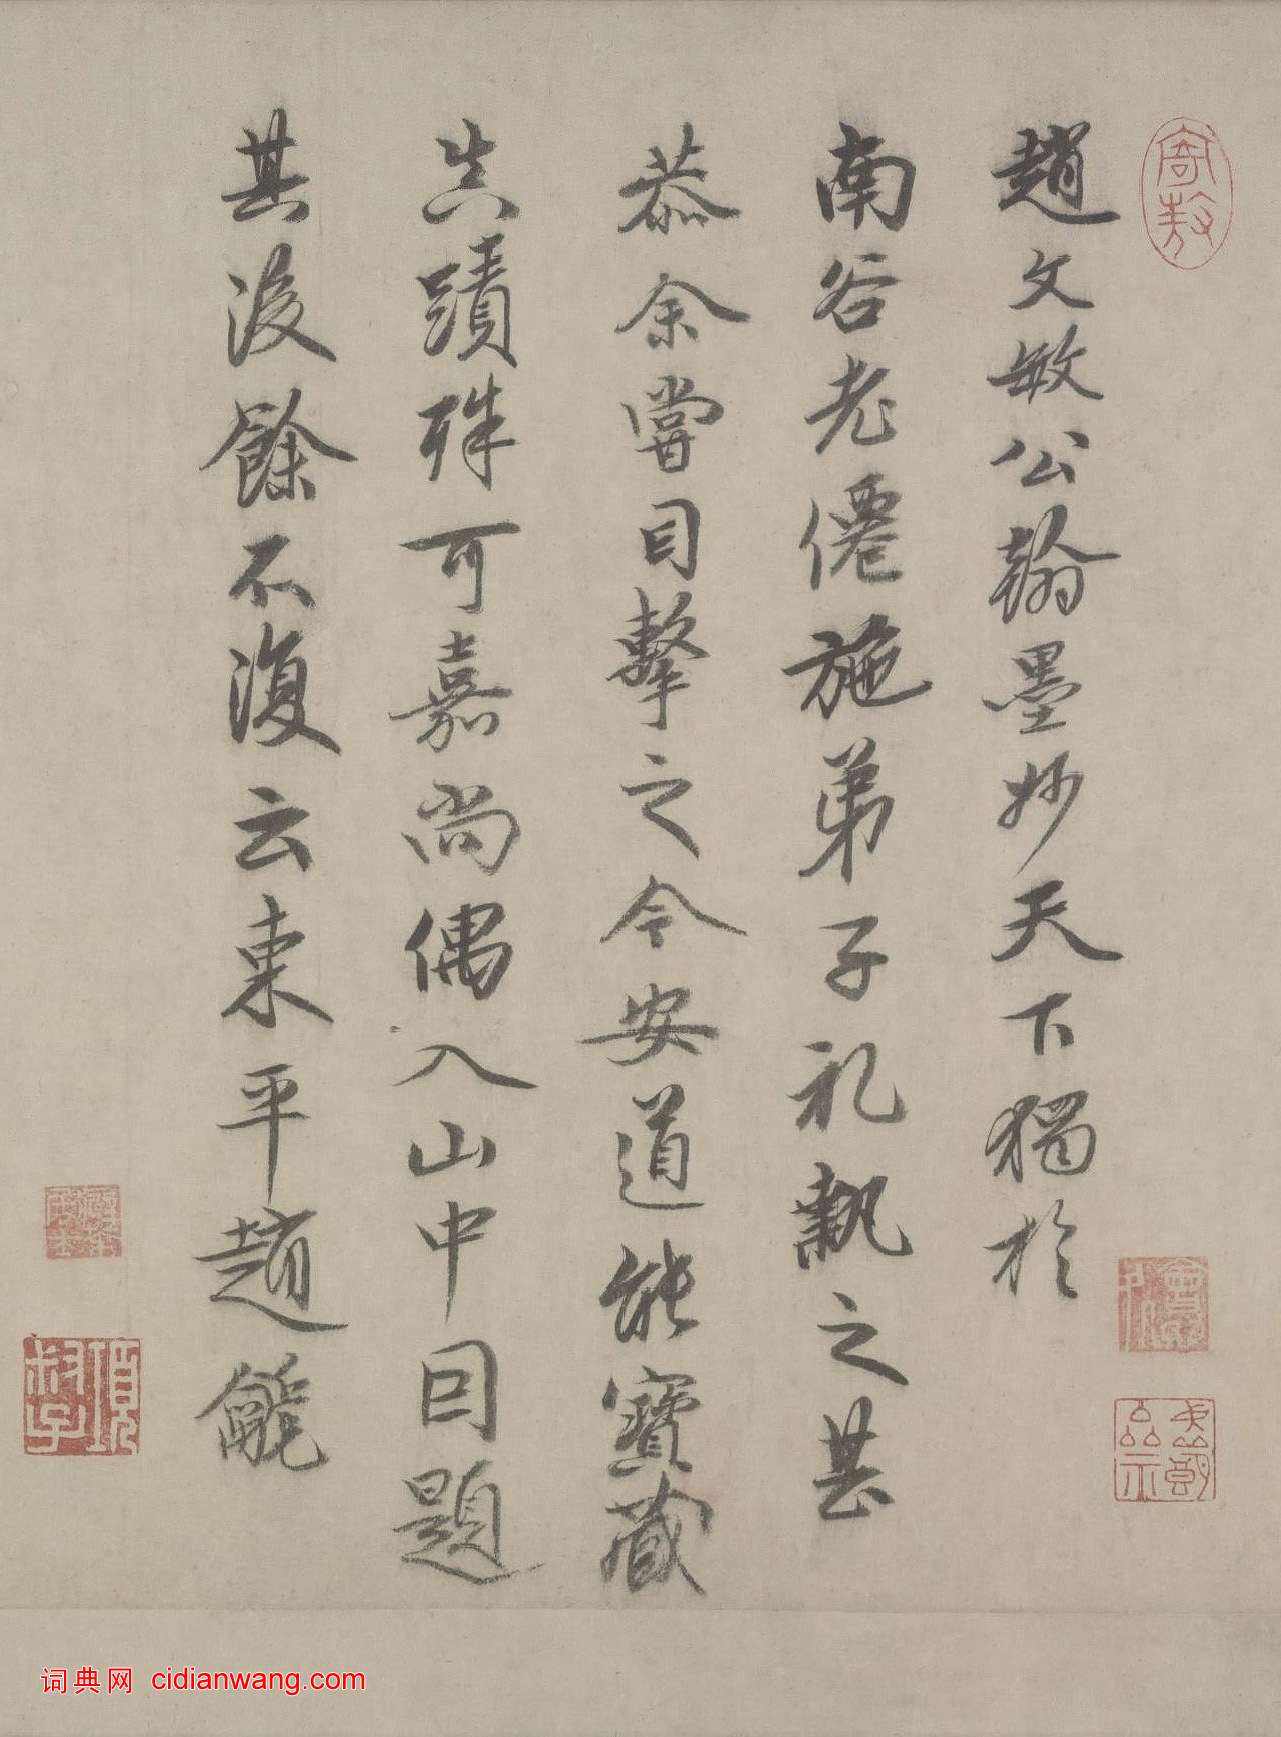 趙文敏公翰墨妙天下獨於
南谷老僊施弟子礼執之甚
恭余嘗目擊之今安道能寶藏
真蹟殊可嘉尚偶入山中因題
其後餘不復云東平趙
項
叔子
词典网 cidianwang.com